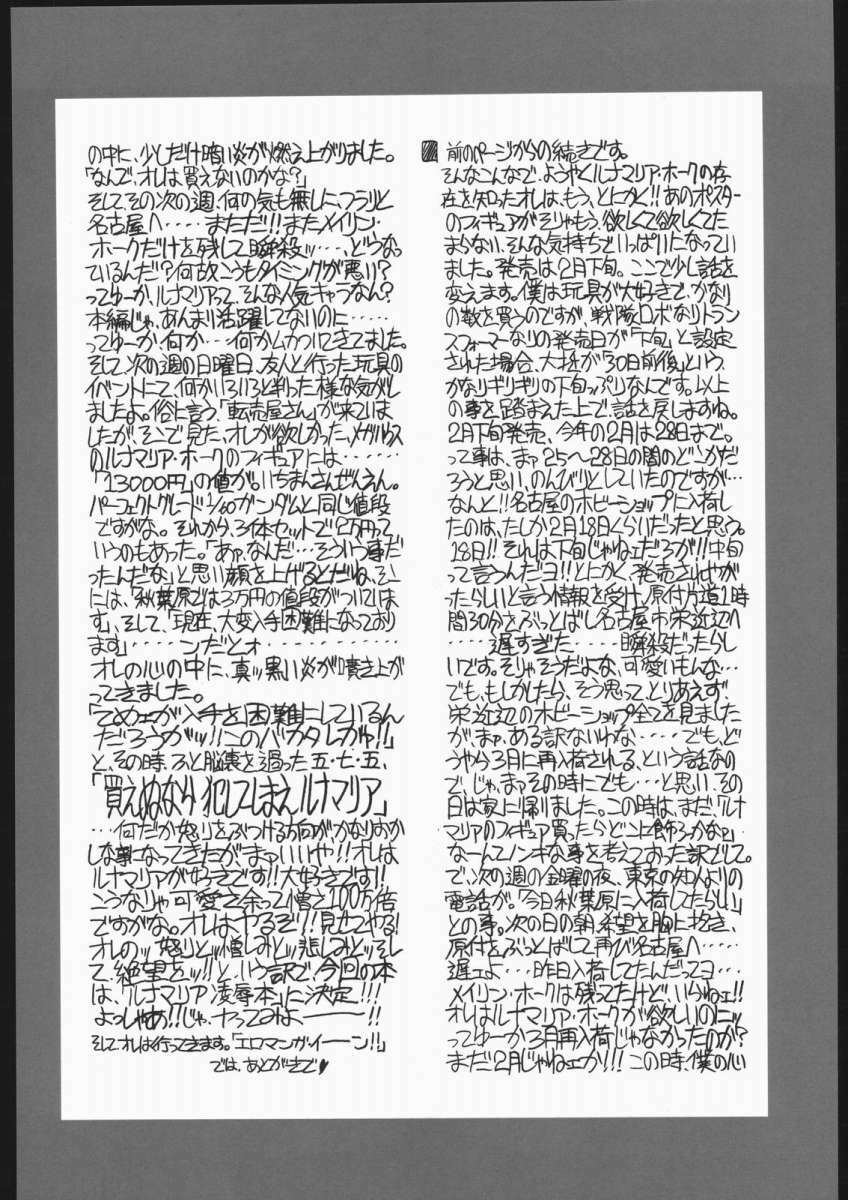 前のページからの続きです。
そんなこんなで、ようやくルナマリア・ホークの存
在を知ったオレは、もう、とにかく!!あのポスター
のフィギュアがそりゃもう、欲しくて欲しくてた
まらない、そんな気持ちでいっぱいになってい
ました。発売は2月下旬。ここで少し話を
変えます。僕は玩具が大好きで、かなり
の数を買うのですが、戦隊ロボなりトラン
スフォーマーなりの発売日が「下旬」と設定
された場合、大抵が「30日前後」という、
かなりギリギリの下旬っぷりなんです。以上
の事を踏まえた上で、話を戻しますね。
2月下旬発売、今年の2月は28日まで。
って事は、まァ25〜28日の間のどっかだ
ろうと思い、のんびりとしていたのですが…
なんと!!名古屋のホビーショップに入荷し
たのは、たしか2月18日くらいだったと思う。
18日!!それは下旬じゃねェだろが!!中旬
って言うんだヨ!!とにかく、発売されやが
ったらしいと言う情報を受け、原付片道1時
間30分をぶっとばし名古屋市栄近辺へ
・・・・・遅すぎた・・・・・瞬殺だったらし
いです。そりゃそうだよな、可愛いもんな…
でも、もしかしたら、そう思って、とりあえず
栄近辺のホビーショップ全てを見ました
が、まァ、ある訳ないわな・・・・・でも、ど
うやら3月に再入荷される、という話なの
で、じゃ、まァその時にでも…と思い、その
日は家に帰りました。この時は、まだ、「ルナ
マリアのフィギュア買ったらどこに飾ろっかなァ」
なーんてノンキな事を考えておった訳でして。
で、次の週の金曜の夜、東京の知人よりの
電話が。「今日秋葉原に入荷したらしい」
との事。次の日の朝、希望を胸に抱き、
原付をぶっとばして再び名古屋へ・・・・・
遅ェよ…昨日入荷してたんだってヨ…
メイリン・ホークは残ってたけど、いらねェ!!
オレはルナマリア・ホークが欲しいのにッ
ってゆーか3月再入荷じゃなかったのか?
まだ2月じゃねェか!!!この時、僕の心
の中に、少しだけ暗い炎が燃え上がりました。
「なんで、オレは買えないのかな?」
そしてその次の週、何の気も無しに、フラリと
名古屋へ・・・・・まただ!!またメイリン・
ホークだけを残して瞬殺ッ・・・・、どうなっ
ているんだ!?何故こうもタイミングが悪い?
ってゆーか、ルナマリアって、そんな人気キャラなん?
本編じゃ、あんまり活躍してないのに・・・・・
ってゆーか、何か…何かムカついてきてました。
そして、次の週の日曜日、友人と行った玩具の
イベントにて、何かいろいろと判った様な気がし
ましたよ。俗に言う、「転売屋さん」が来ていま
したが、そこで見た、オレが欲しかった、メガハウス
のルナマリア・ホークのフィギュアには・・・・・・・
「13000円」の値が。いちまんさんぜんえん。
パーフェクトグレード1/60ガンダムと同じ値段
ですがな。それから、3体セットで2万円って
いうのもあった。「あァ、なんだ…そういう事だ
ったんだな」と思い顔を上げるとだね、そこ
には、「秋葉原では3万円の値段がついていま
す」、そして、「現在、大変入手困難になっており
ます」・・・・・・ンだとォ・・・・・・・・・・・・・・
オレの心の中に、真ッ黒い炎が噴き上が
ってきました。
「てめェが入手を困難にしているん
だろうがッ!!このバカタレがァ!!」
と、その時、ふと脳裏を過った五・七・五、
「買えぬなら 犯してしまえ ルナマリア」
…何だか怒りをぶつける方向がかなりおか
しな事になってきたが、まァいいや!!オレは
ルナマリアが好きです!!大好きです!!
こうなりゃ可愛さ余って憎さ100万倍
ですがな。オレはやるぞ!!見せてやる!
オレのッ怒りとッ憎しみとッ悲しみとッそし
て、絶望をッ!!と、いう訳で、今回の本
は、「ルナマリア凌辱本」に決定!!!
よっしゃあ!!!じゃ、ヤってみよーーーー!!
そしてオレは行ってきます。「エロマンガ・イーーン!!」
では、あとがきで♥